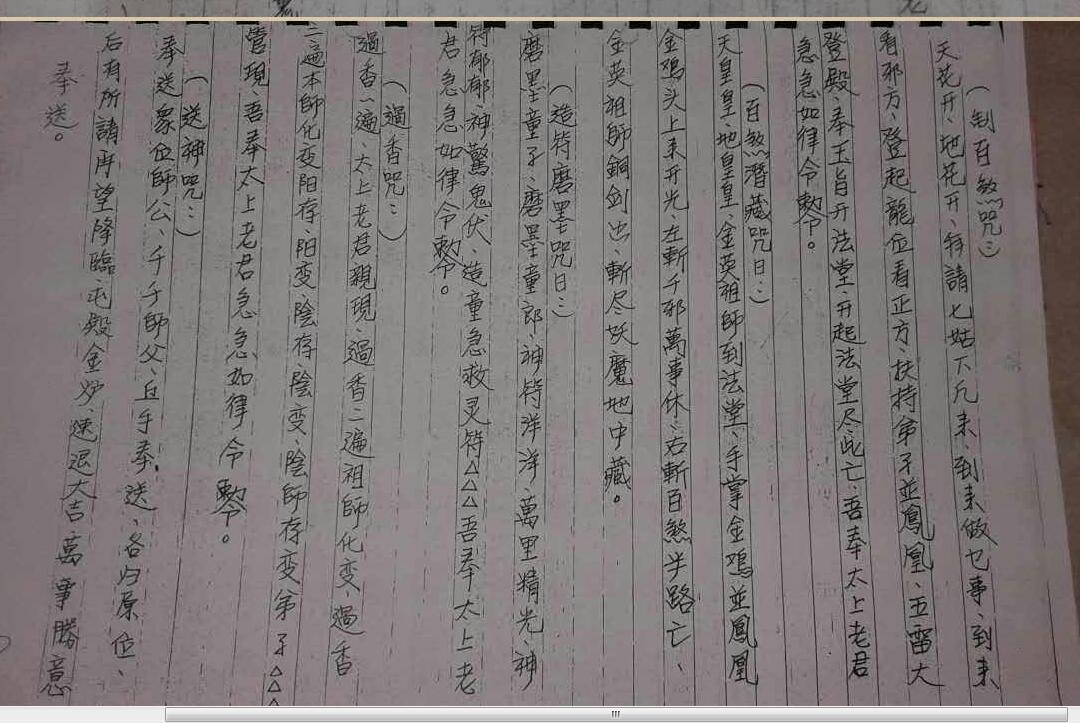 （制百煞咒：）
天花开、地花开、拜請七姑下凡来、到来做乜事、到来
看邪方、登起龍位看正方、扶持弟子並鳳凰、五雷大
登殿、奉玉旨开法堂、开起法堂尽此亡、吾奉太上老君
急急如律令勅。
（百煞潛藏咒日：）
天皇皇、地皇皇、金英祖師到法堂、手掌金鸡並鳳凰
金鸡头上来开光、左斬千邪萬事休、右斬百煞半路亡、
金英祖師銅剑出、斬尽妖魔地中藏。
（造符磨墨咒日：）
磨墨童子、磨墨童郎、神符洋洋、萬里精光、神
符郁郁、神驚鬼伏、造童急救灵符△△△吾奉太上老
君急急如律令勅。
（過香咒：）
過香一遍、太上老君親現、過香二遍祖師化变、過香
三遍本師化变阳存、阳变、陰存、陰变、陰師存变弟子△△△
管現、吾奉太上老君急急如律令勅。
（送神咒：）
奉送衆位師公、千千師父、丘手奉送、各归原位、
后有所請再望降臨、金炉、速退大吉、萬事勝意
奉送。